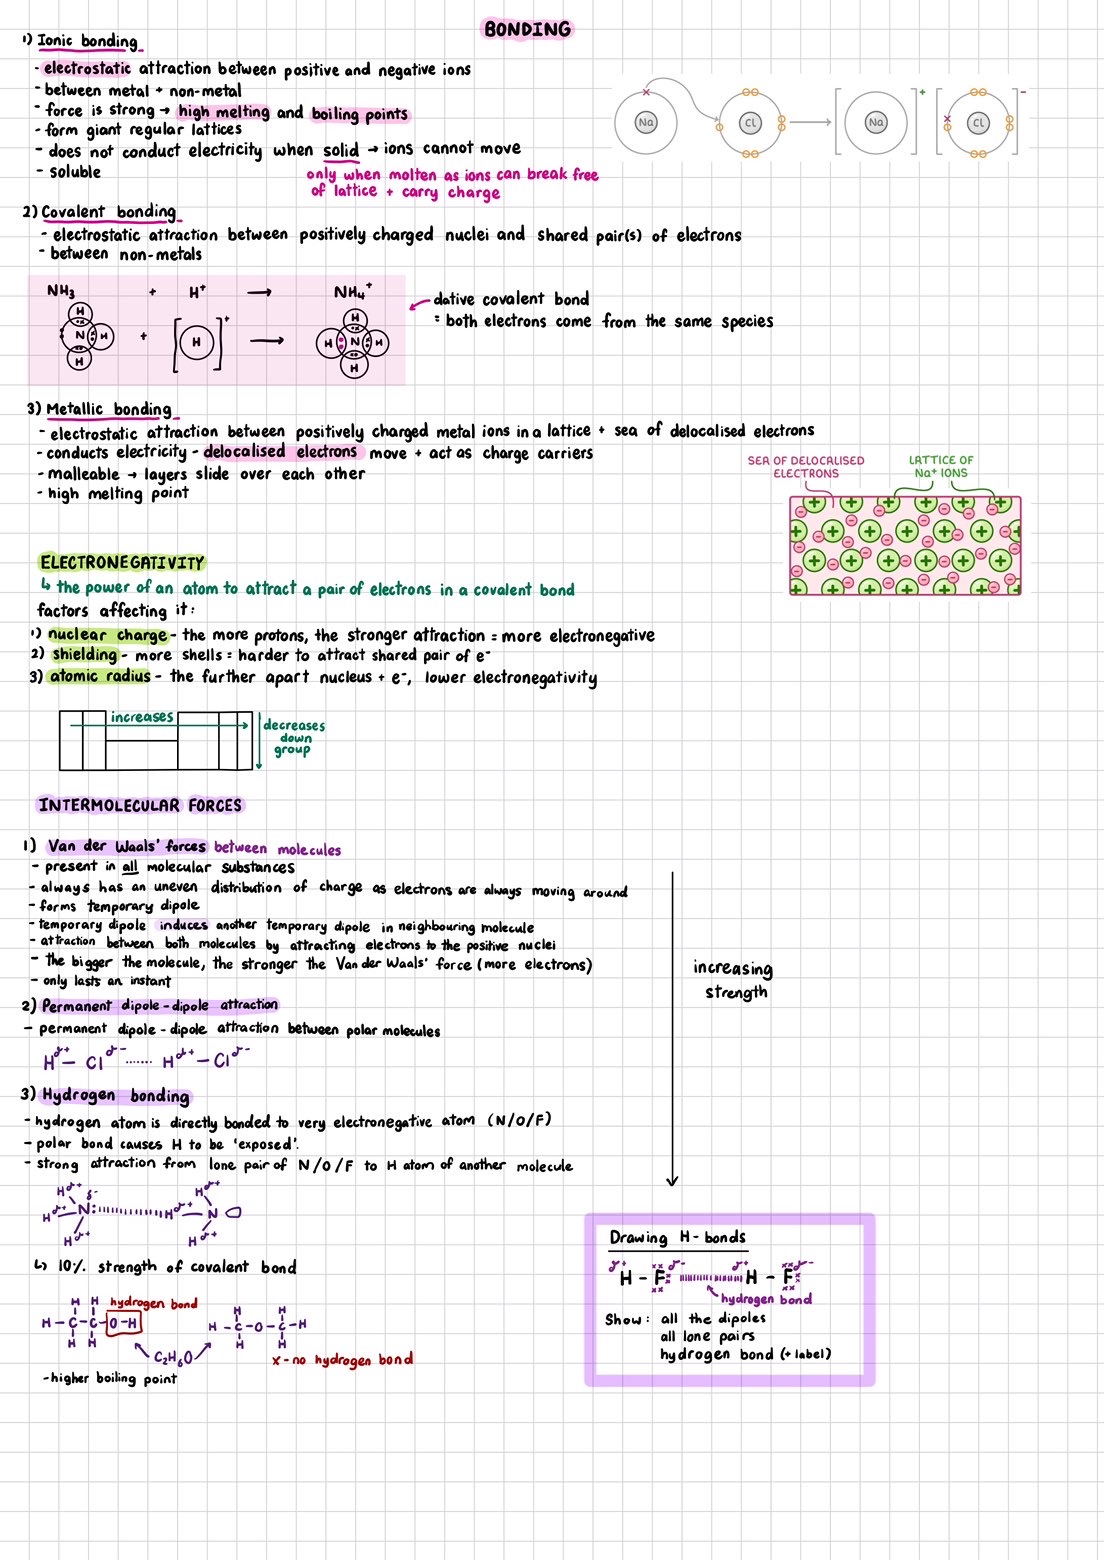 BONDING
1) Ionic bonding
- electrostatic attraction between positive and negative ions
- between metal + non-metal
- force is strong → high melting and boiling points
- form giant regular lattices
- does not conduct electricity when solid → ions cannot move
- soluble
only when molten as ions can break free
of lattice + carry charge
Na Cl Na + Cl -
2) Covalent bonding
- electrostatic attraction between positively charged nuclei and shared pair(s) of electrons
- between non-metals
NH₃ + H⁺ → NH₄⁺
H
N H
H
+
[H]⁺
→
H
H N H
H
dative covalent bond
= both electrons come from the same species
3) Metallic bonding
- electrostatic attraction between positively charged metal ions in a lattice + sea of delocalised electrons
- conducts electricity - delocalised electrons move + act as charge carriers
- malleable → layers slide over each other
- high melting point
SEA OF DELOCALISED
ELECTRONS
LATTICE OF
Na⁺ IONS
ELECTRONEGATIVITY
↳ the power of an atom to attract a pair of electrons in a covalent bond
factors affecting it:
1) nuclear charge - the more protons, the stronger attraction = more electronegative
2) shielding - more shells = harder to attract shared pair of e⁻
3) atomic radius - the further apart nucleus + e⁻, lower electronegativity
increases
decreases
down
group
INTERMOLECULAR FORCES
1) Van der Waals' forces between molecules
- present in all molecular substances
- always has an uneven distribution of charge as electrons are always moving around
- forms temporary dipole
- temporary dipole induces another temporary dipole in neighbouring molecule
- attraction between both molecules by attracting electrons to the positive nuclei
- the bigger the molecule, the stronger the Van der Waals' force (more electrons)
- only lasts an instant
increasing
strength
2) Permanent dipole - dipole attraction
- permanent dipole - dipole attraction between polar molecules
Hδ+ – Clδ- ....... Hδ+ – Clδ-
3) Hydrogen bonding
- hydrogen atom is directly bonded to very electronegative atom (N/O/F)
- polar bond causes H to be 'exposed'.
- strong attraction from lone pair of N/O/F to H atom of another molecule
Hδ+ δ- Hδ+
Hδ+ – N: Hδ+ – N
Hδ+ Hδ+
↳ 10% strength of covalent bond
H H hydrogen bond
H – C – C – O – H
H H
H H
H – C – O – C – H
H H
C₂H₆O
x - no hydrogen bond
- higher boiling point
Drawing H-bonds
δ+ δ- δ+ δ-
H – F H – F
hydrogen bond
Show: all the dipoles
all lone pairs
hydrogen bond (+ label)